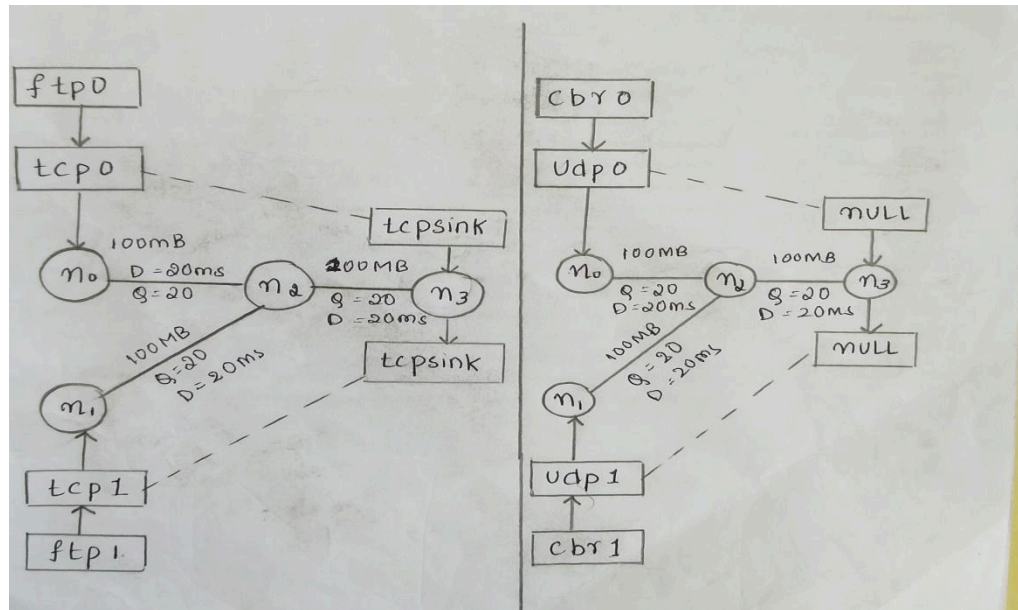 ftp0
tcp0
tcpsink
100MB
D=20ms
Q=20
n0
n2
100MB
Q=20
D=20ms
n3
100MB
Q=20
D=20ms
tcpsink
n1
tcp1
ftp1.
cbr0
Udp0
nULL
n0
100MB
Q=20
D=20ms
n2
100MB
Q=20
D=20ms
n3
100MB
Q=20
D=20ms
nULL
n1
udp1
cbr1